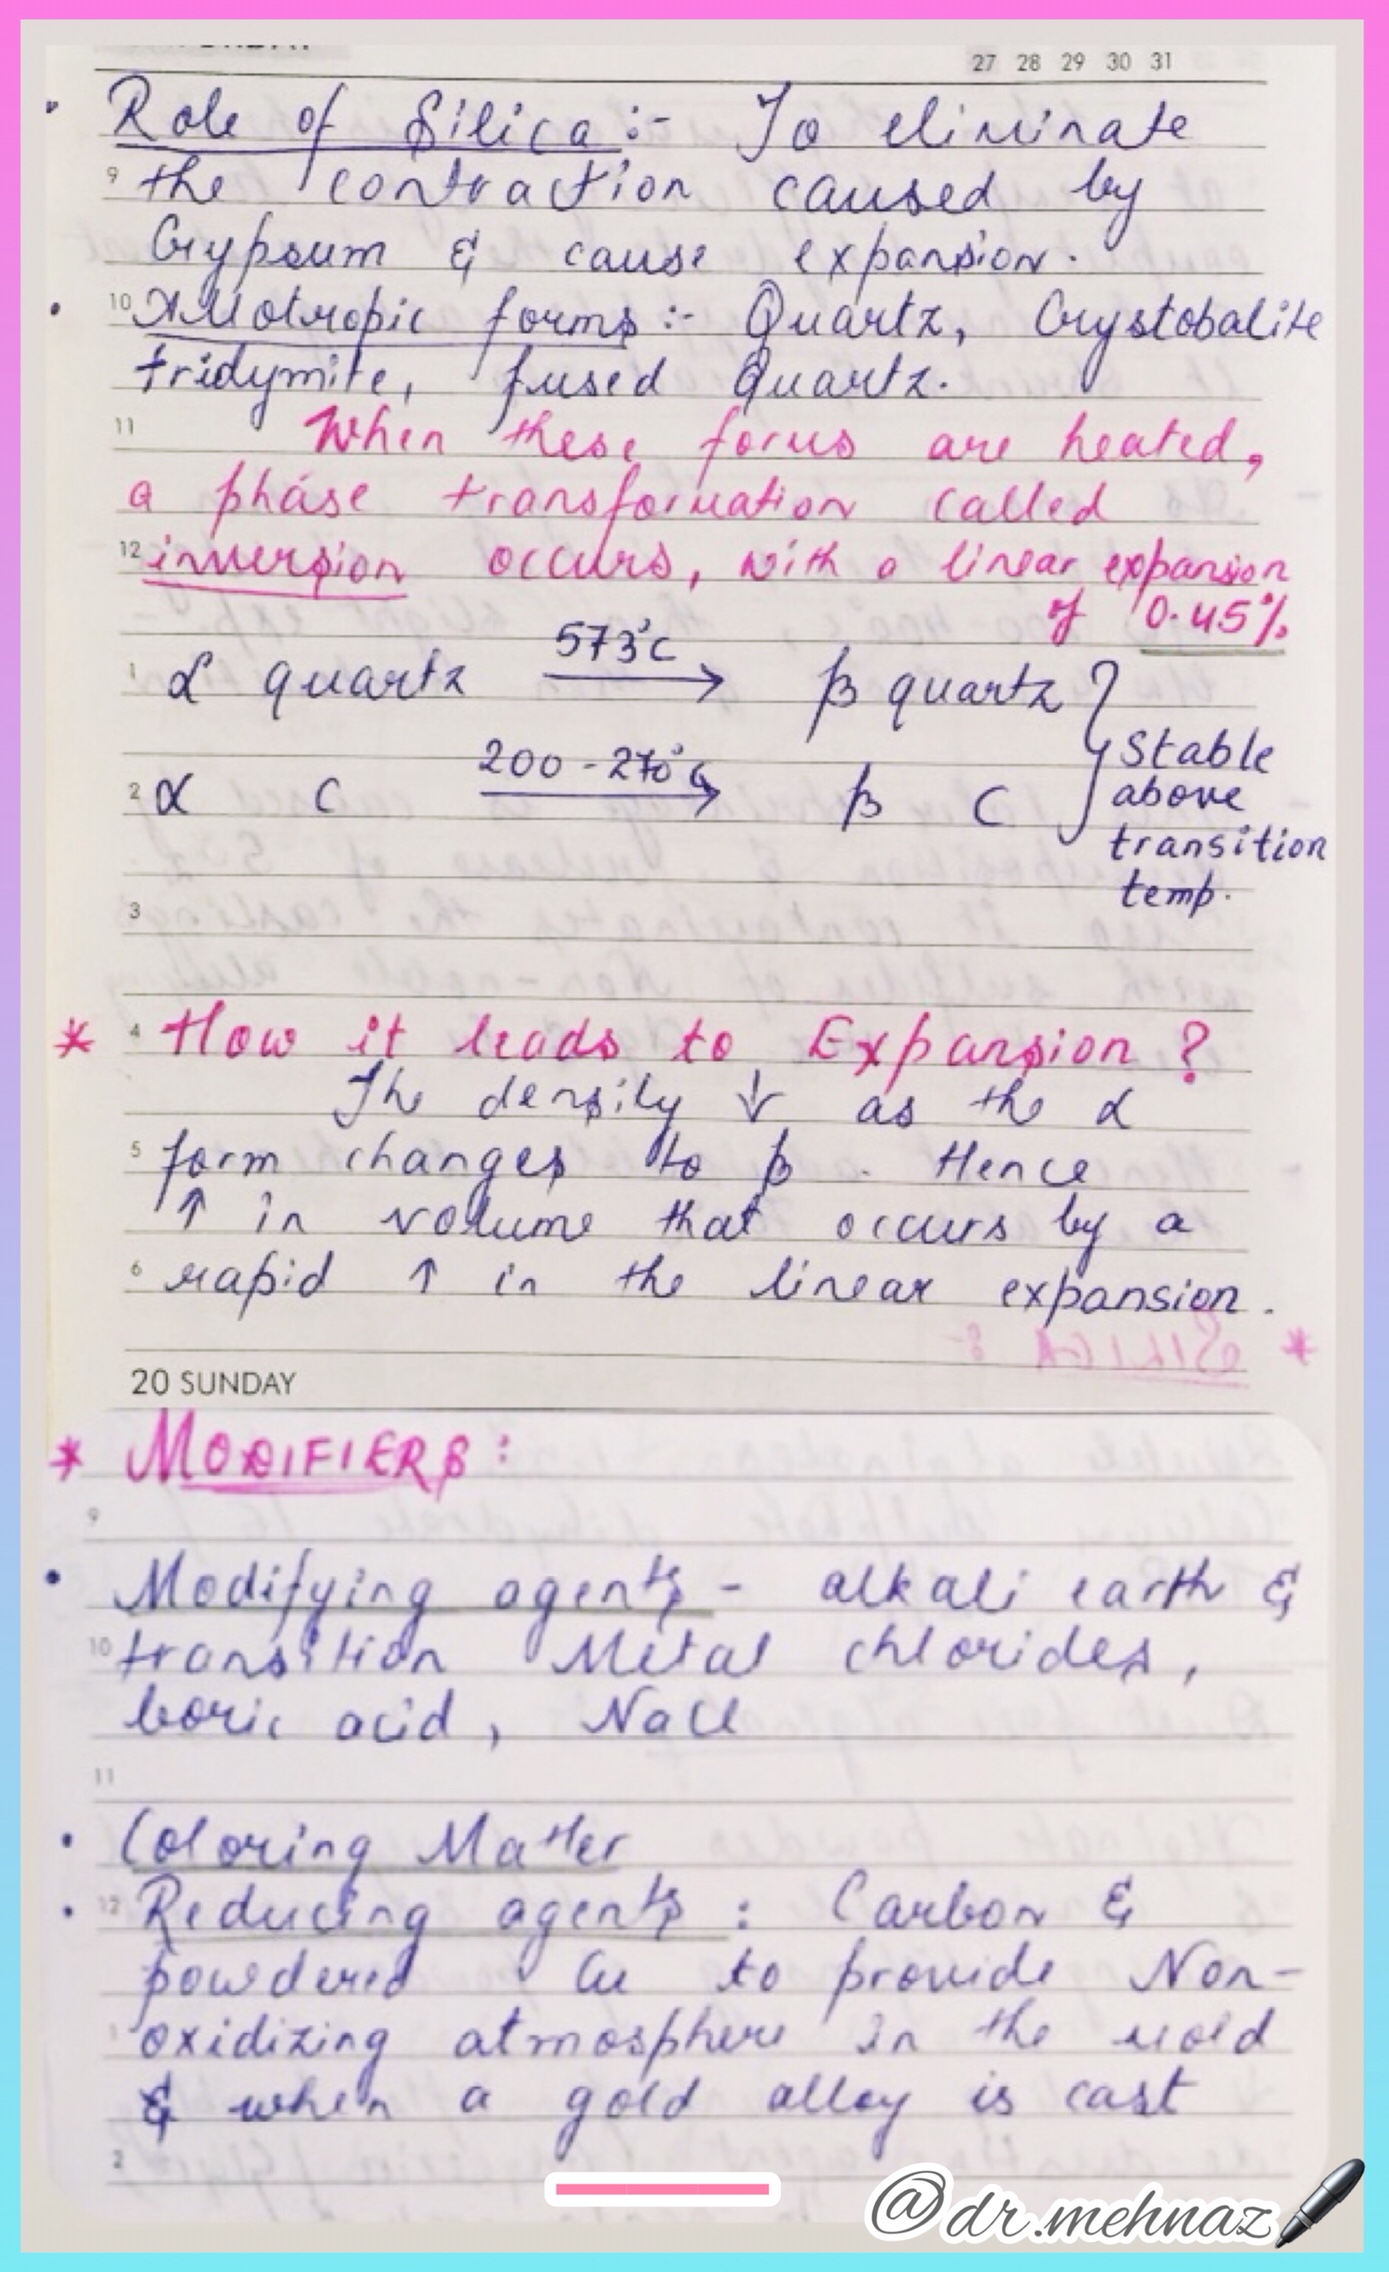 27 28 29 30 31
• Role of Silica :- To eliminate
9 the contraction caused by
Gypsum & cause expansion.
• 10 Allotropic forms :- Quartz, Crystobalite
tridymite, fused Quartz.
11 When these forms are heated,
a phase transformation called
12 inversion occurs, with a linear expansion
of 0.45%
573°C
1 α quartz → β quartz }
200 - 270°C
Stable
2 α C → β C above
transition
temp.
3
* 4 How it leads to Expansion ?
The density ↓ as the α
5 form changes to β. Hence
↑ in volume that occurs by a
6 rapid ↑ in the linear expansion.
20 SUNDAY
* MODIFIERS :
9
• Modifying agents - alkali earth &
10 transition Metal chlorides,
boric acid, NaCl
11
• Coloring Matter
• 12 Reducing agents : Carbon &
powdered Cu to provide Non-
1 oxidizing atmosphere in the mold
& when a gold alloy is cast
2
@dr.mehnaz